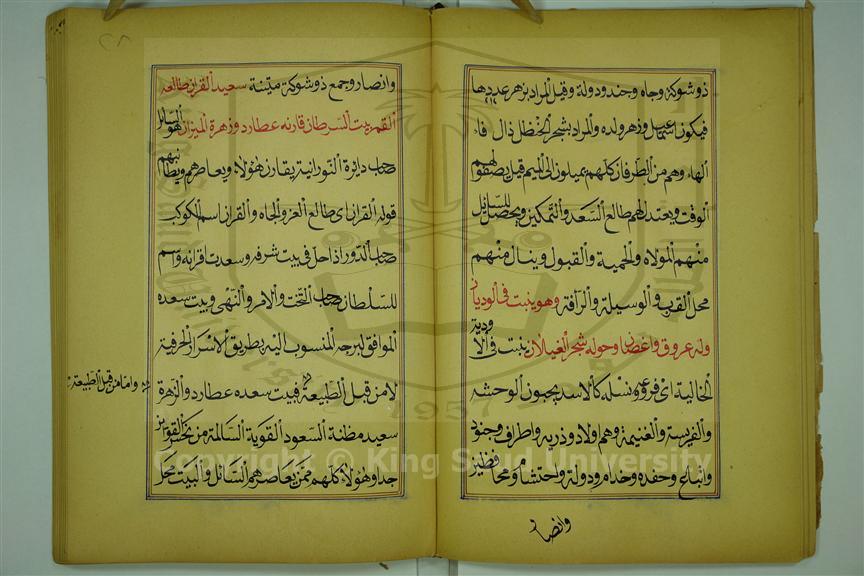 ذو شوكة وجاه وجند ودولة وقيل المراد بزهر عددها
٢١٢
فيكون اسماعيل وزهر ولده والمراد بشجر الحنظل ذال فاء
الهاء وهم من الطرفان كلهم يميلون الى الميم قيل يصفو لهم
الوقت ويعتدل لهم طالع السعد والتمكين ويحصل للسائل
منهم المولاه والحمية والقبول وينال منهم
محل القرب والوسيلة والرآفة وهو ينبت فى الوديان
وله عروق واغصان وحوله شجر الغيلان ينبت فى الاودية
الخالية اى فروعه ونسله كالاسد يحبون الوحشه
والفريسة والغنيمة وهم اولاد وذريه واطراف وجنود
واتباع وحفده وخدام ودولة واحتشام ومحافظين
وانصار
٢٨
وانصار وجمع ذو شوكة متينة سعيد القران طالعه
القمر بيت السرطان قارنه عطارد وزهرة الميزان هو السائل
صاحب دايرة النورانية يقارن هؤلاء ويعاصرهم ويطالبهم
قوله القران اى طالع العز والجاه والقران اسم الكوكب
صاحب الدور اذا حل فى بيت شرفه وسعدت اقرانه واسم
للسلطان صاحب التخت والامر والنهى وبيت سعده
الموافق لبرجه المنسوب اليه بطريق الاسرار الحرفية
لا من قبل الطبيعة فبيت سعده عطارد والزهرة
واما من قبل الطبيعة
سعيد مظنة السعود القوية السالمة من نحس القوابز
جدا وهؤلاء كلهم ممن يعاصرهم السائل والبيت محل
Copyright © King Saud University
1957